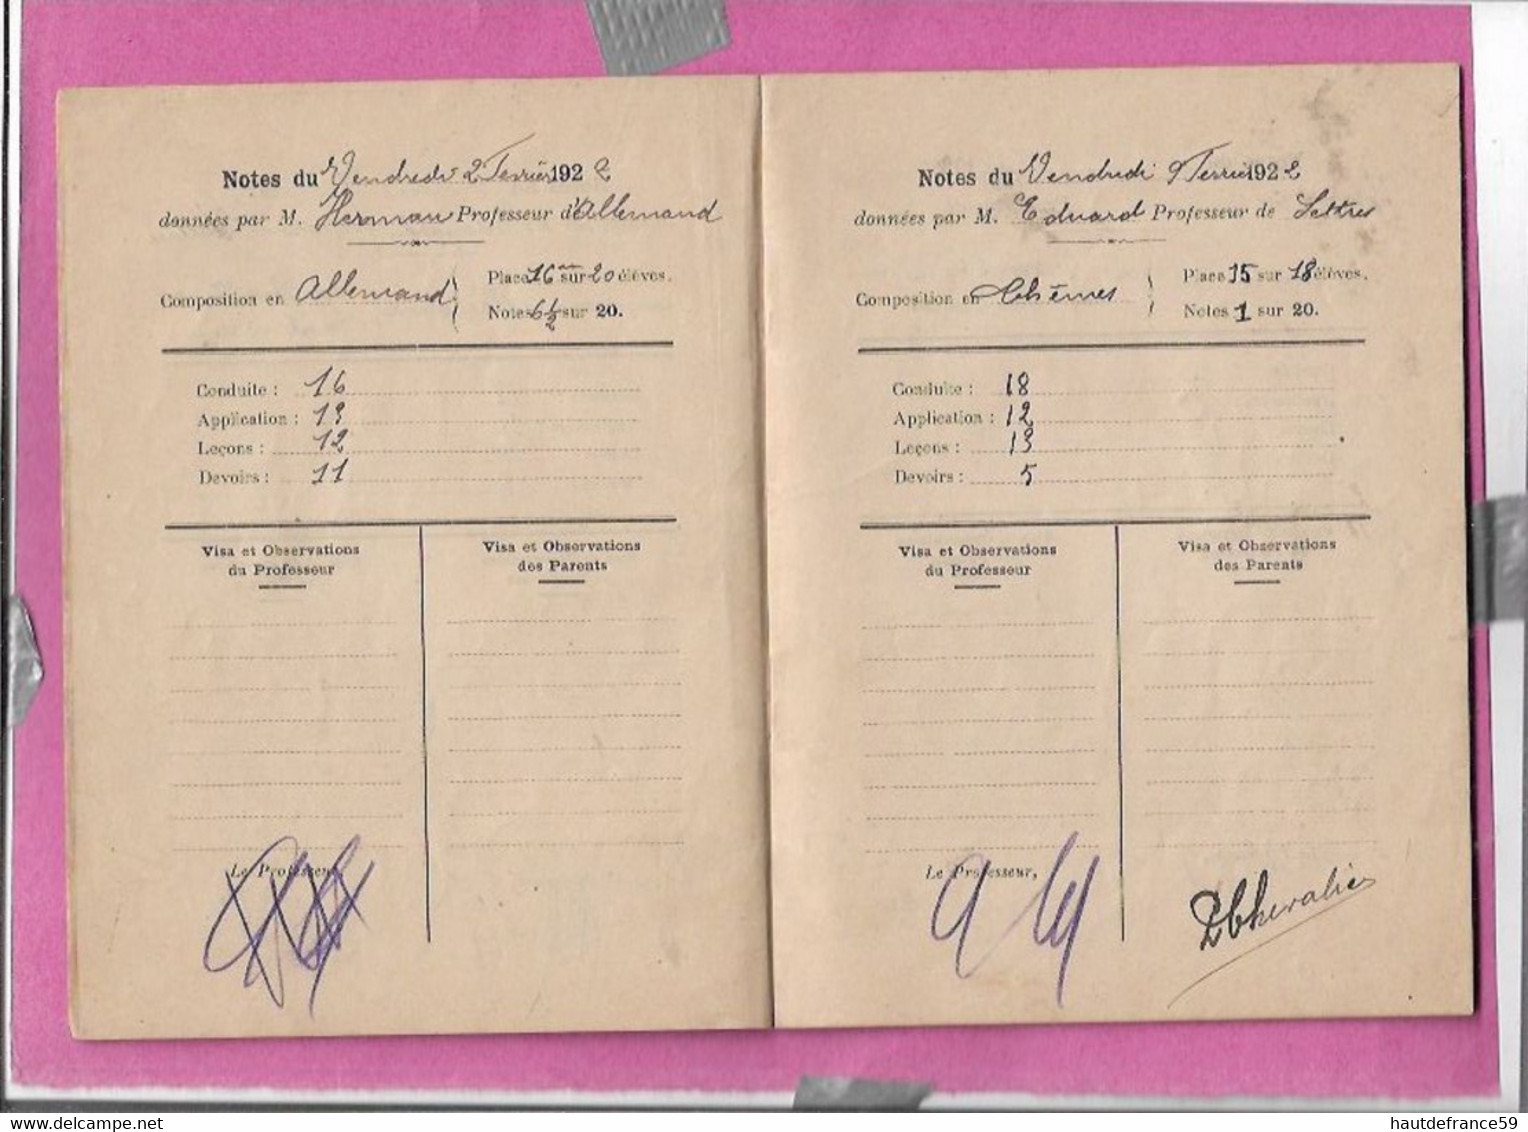 Notes du Vendredi 2 Fevrier 1922
données par M. Herman Professeur d'Allemand
Composition en Allemand
Place 16 sur 20 élèves.
Notes 6 1/2 sur 20.
Conduite : 16
Application : 13
Leçons : 12
Devoirs : 11
Visa et Observations
du Professeur
Visa et Observations
des Parents
Le Professeur
Notes du Vendredi 9 Fevrier 1922
données par M. Eduard Professeur de Lettres
Composition en thèmes
Place 15 sur 18 élèves.
Notes 1 sur 20.
Conduite : 18
Application : 12
Leçons : 13
Devoirs : 5
Visa et Observations
du Professeur
Visa et Observations
des Parents
Le Professeur,
Chevalier
hautdefrance59